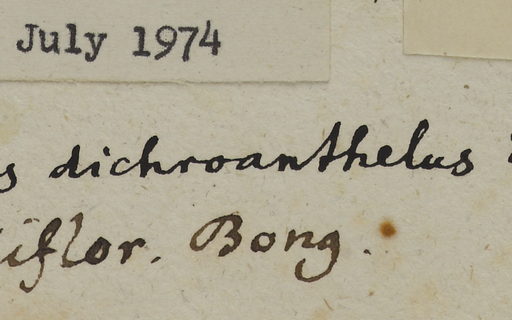 July 1974
s dichroanthelus
iflor. Bong.